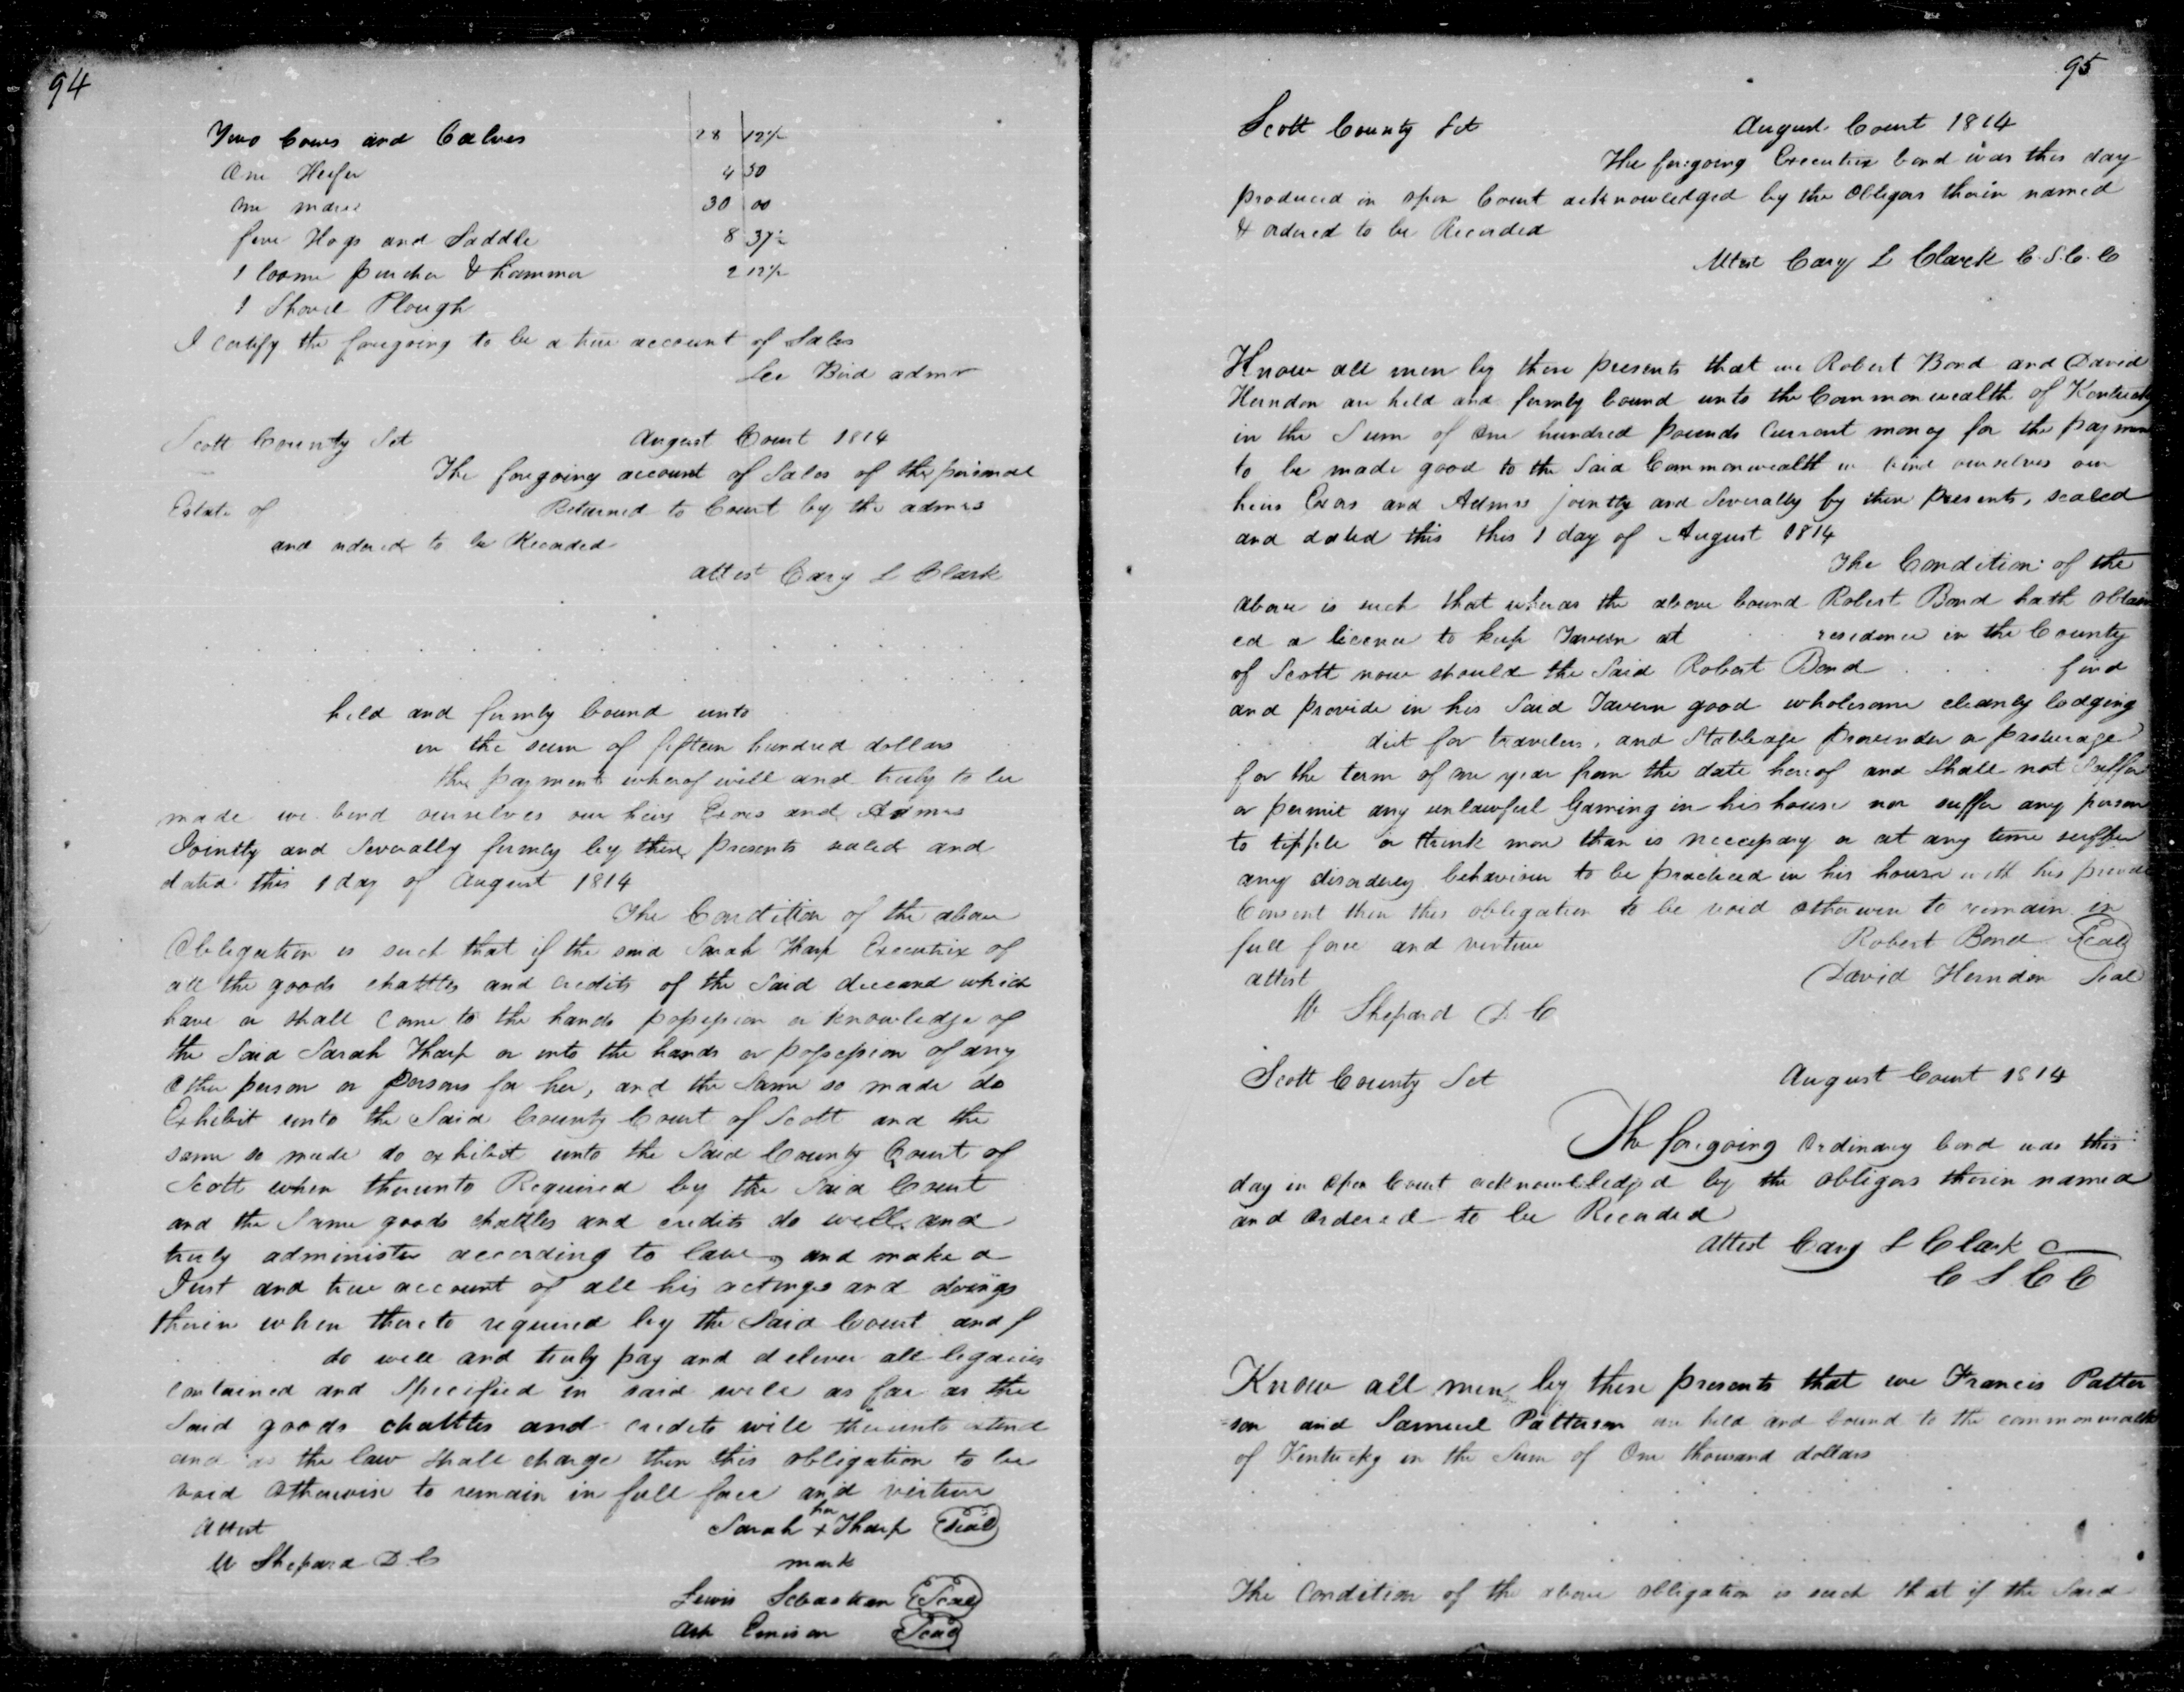 94
Two Cows and Calves 28 12½
One Heifer 4 50
One mare 30 00
five Hogs and Saddle 8 37½
1 loome & hammer 2 12½
1 Shovel Plough
I certify the foregoing to be a true account of Sales
Lee Bird admr
Scott County Sct August Court 1814
The foregoing account of Sales of the personal
Estate of Returned to Court by the admrs
and ordered to be Recorded
attest Cary L Clark
held and firmly bound unto
in the sum of fifteen hundred dollars
the payment whereof will and truly to be
made we bind ourselves our heirs Exors and Admrs
Jointly and Severally firmly by these presents sealed and
dated this 1 day of August 1814
The Condition of the above
Obligation is such that if the said Sarah Tharp Executrix of
all the goods chattles and credits of the Said deceasd which
have or shall come to the hands possession or knowledge of
the Said Sarah Tharp or into the hands or possession of any
other person or persons for her, and the Same so made do
Exhibit unto the Said County Court of Scott and the
same so made do exhibit unto the Said County Court of
Scott when thereunto Required by the Said Court
and the Same goods chattles and credits do well and
truly administer according to law, and make a
Just and true account of all his actings and doings
therein when thereto required by the Said Court and f
do well and truly pay and deliver all legacies
contained and Specified in said will as far as the
Said goods chattles and credits will thereunto extend
and as the law Shall charge then this obligation to be
void Otherwise to remain in full force and virtue
Attest Sarah her x Tharp Seal
W Shepard D.C mark
Lewis Sebastian Seal
Ash Emison Seal
95
Scott County Sct August Court 1814
The foregoing Executrix bond was this day
produced in open Court acknowledged by the Obligors therin named
& ordered to be Recorded
Attest Cary L Clark C.S.C.C
Know all men by these presents that we Robert Bond and David
Herndon are held and firmly bound unto the Commonwealth of Kentucky
in the Sum of One hundred Pounds Current money for the payment
to be made good to the Said Commonwealth we bind ourselves our
heirs Exors and Admrs jointly and Severally by these presents, sealed
and dated this this 1 day of August 1814
The Condition of the
above is such that wheras the above bound Robert Bond hath obtain
ed a licence to keep Tavern at residence in the County
of Scott now should the Said Robert Bond find
and provide in his Said Tavern good wholesome cleanly lodging
diet for travelers, and Stableage Provender or pasturage
for the term of one year from the date hereof and Shall not Suffer
or permit any unlawful Gaming in his house nor suffer any person
to tipple or think more than is necessary or at any time suffer
any disorderly behaviour to be practiced in his house with his
Consent then this obligation to be void otherwise to remain in
full force and virtue Robert Bond Seal
attest David Herndon Seal
W Shepard D C
Scott County Sct August Court 1814
The foregoing Ordinary bond was this
day in Open Court acknowledged by the obligors therein named
and Ordered to be Recorded
Attest Cary L Clark C
C S C C
Know all men by these presents that we Francis Patter
=son and Samuel Patterson are held and bound to the commonwealth
of Kentucky in the Sum of One thousand dollars
The Condition of the above obligation is such that if the Said